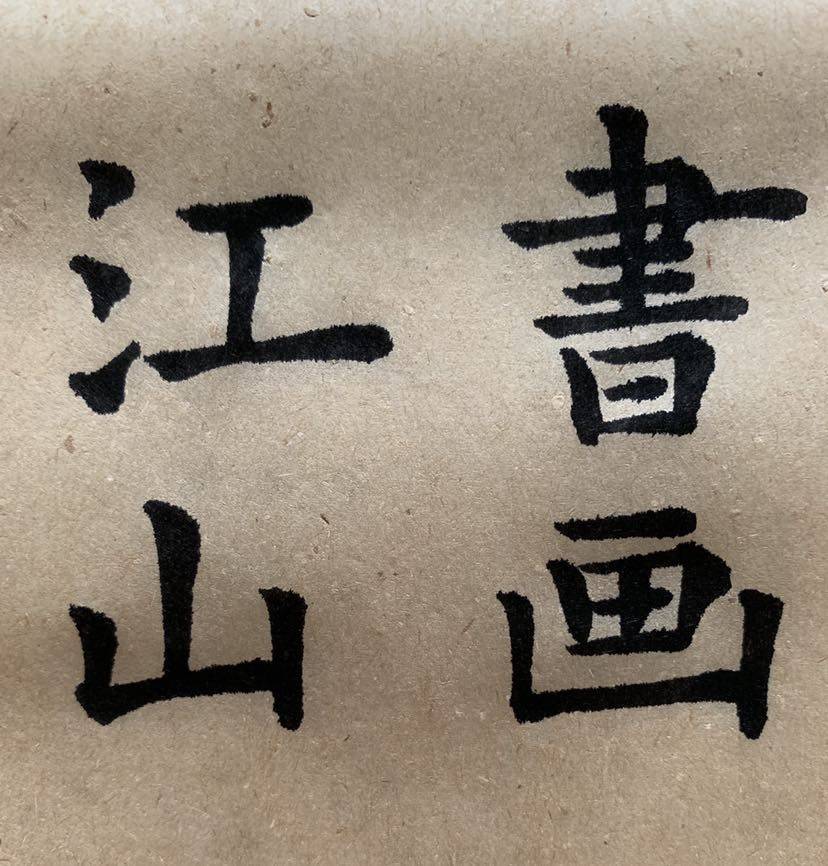 書画
江山